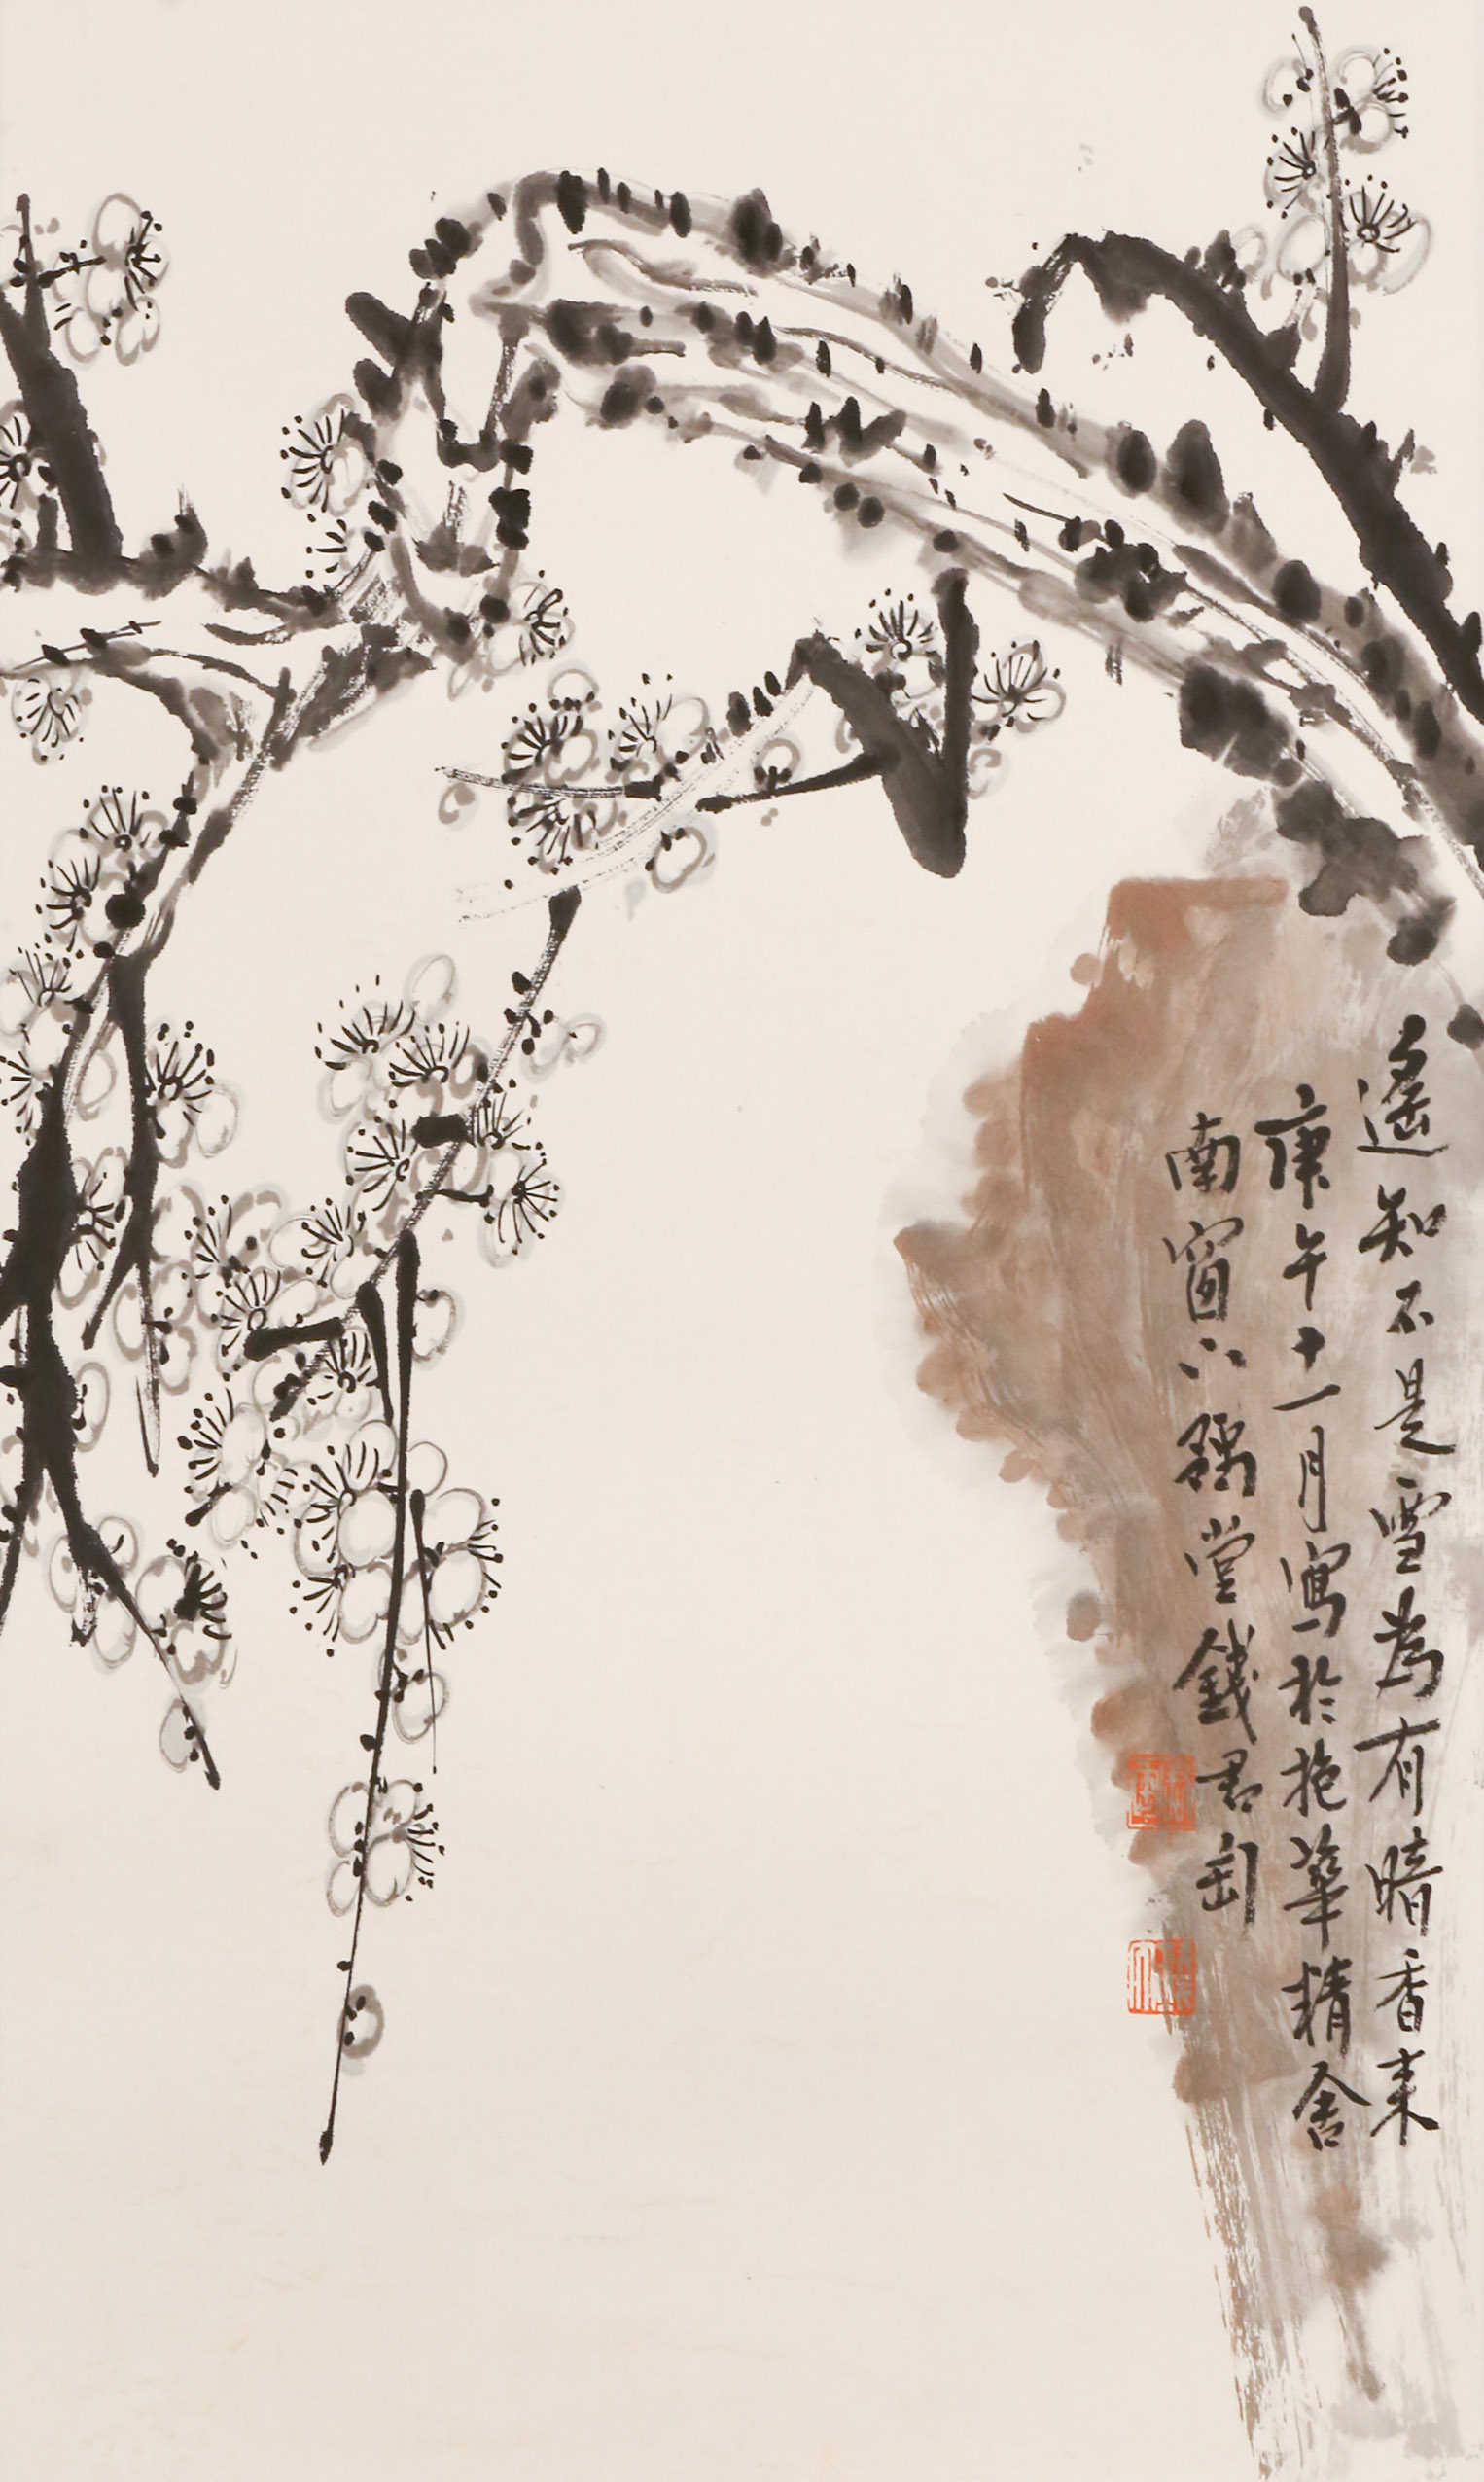 遙知不是雪為有暗香來
庚午十一月寫於抱華精舍
南窗下豫堂錢君匋